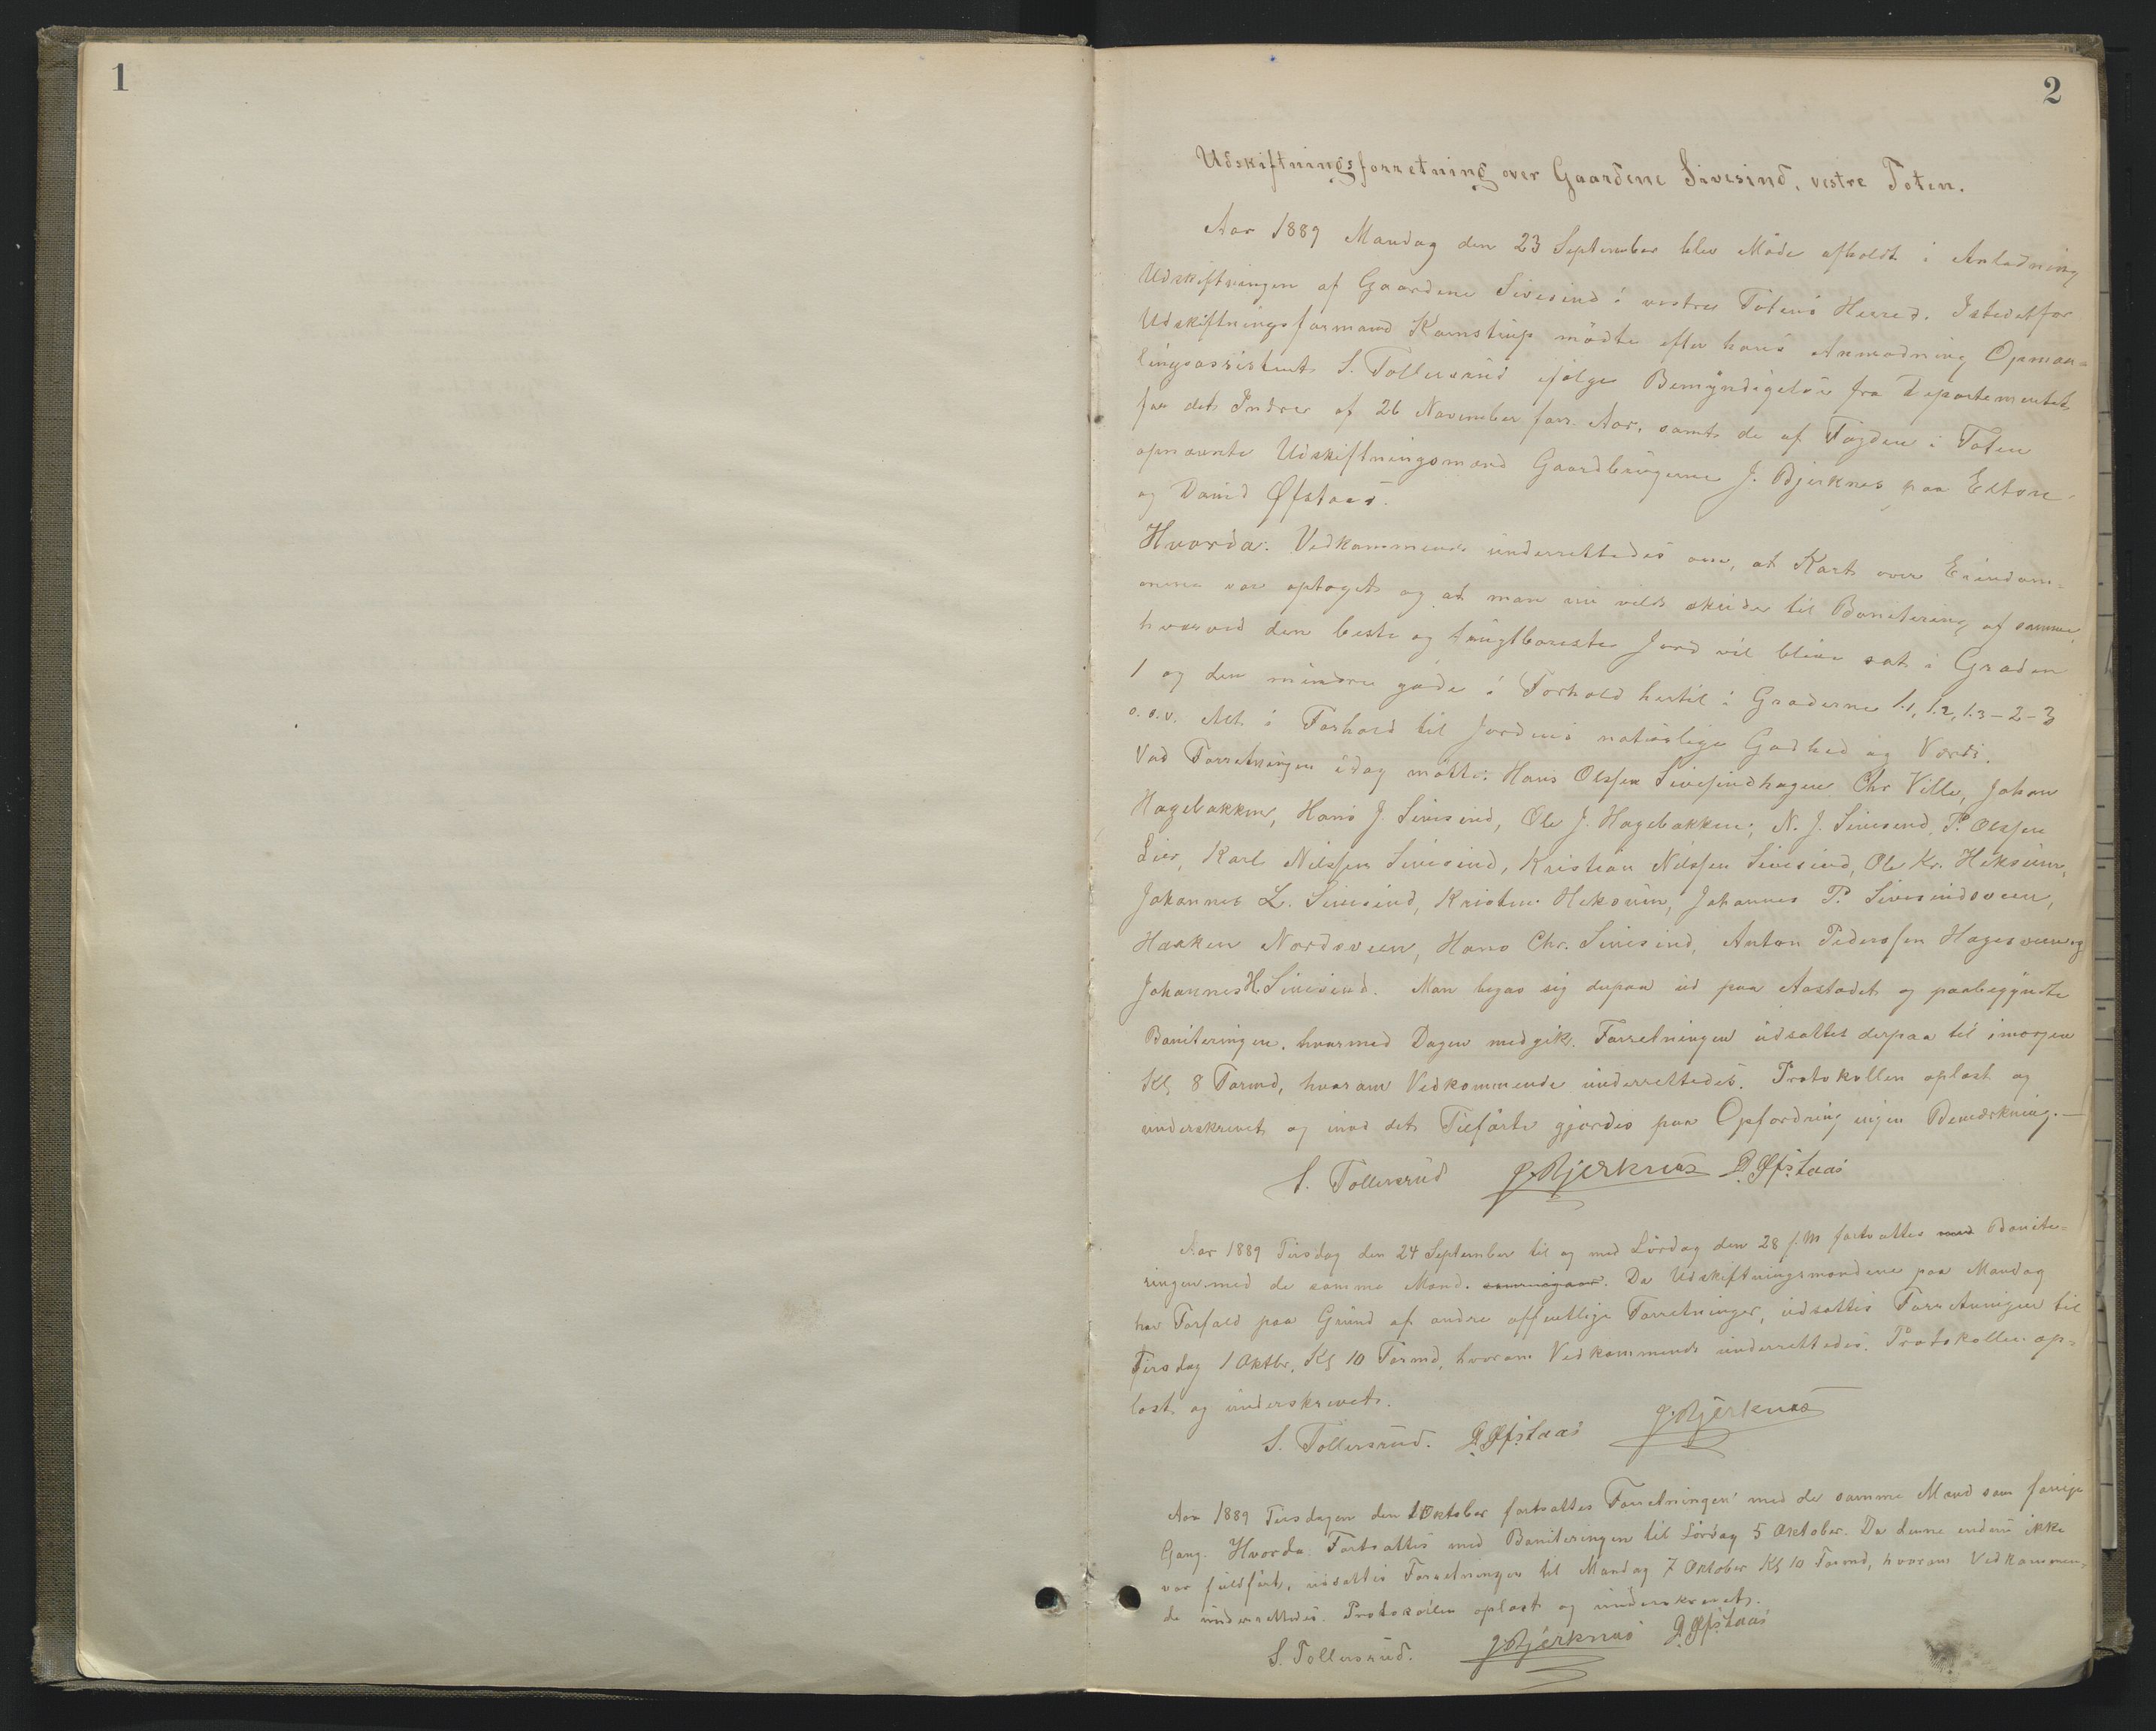 1
2
Udskiftningsforretning over Gaardene Sivesind, vestre Toten.
Aar 1889 Mandag den 23 September blev Møde afholdt i Anledning
Udskiftningen af Gaardene Sivesind i vestre Totens Herred. Istedetfor
Udskiftningsformand Karnstrup mødte efter hans Anmodning Opmaa-
lingsassistent S. Tollersrud ifølge Bemyndigelse fra Departementet
for det Indre af 26 November forr. Aar, samt de af Fogden i Toten
opnævnte Udskiftningsmænd Gaardbrugerne J. Bjerknes paa Eltone
og David Øfstaas.
Hvorda: Vedkommende underrettedes om, at Kart over Eiendom-
mene var optaget og at man nu vilde skride til Bonitering af samme,
hvorved den beste og frugtbareste Jord vil blive sat i Graden
1 og den mindre gode i Forhold hertil i Graderne 1.1, 1.2, 1.3 - 2 - 3
o.s.v. Alt i Forhold til Jordens naturlige Godhed og Værdi.
Ved Forretningen idag mødte: Hans Olssen Sivesindhagen Chr Ville, Johan
Hagebakken, Hans J. Sivesind, Ole J. Hagebakken, N. J. Sivesind, P. Olssen
Lier, Karl Nilssen Sivesind, Kristian Nilssen Sivesind, Ole Kr. Heksum,
Johannes L. Sivesind, Kristen Heksum, Johannes P. Sivesindsveen,
Haaken Nordsveen, Hans Chr. Sivesind, Anton Pederssen Hagesveen og
Johannes H Sivesind. Man begav sig derpaa ud paa Aastedet og paabegyndte
Boniteringen, hvormed Dagen medgik. Forretningen udsattes derpaa til imorgen
Kl 8 Formd, hvorom Vedkommende underrettedes. Protokollen oplæst og
underskrevet og imod det Tilførte gjordes paa Opfordring ingen Bemærkning.—
S. Tollersrud J. Bjerknæs D. Øfstaas
Aar 1889 Tirsdag den 24 September til og med Lørdag den 28 s.M fortsattes med Bonite-
ringen med de samme Mænd. Da Udskiftningsmændene paa Mandag
har Forfald paa Grund af andre offentlige Forretninger, udsattes Forretningen til
Tirsdag 1 Oktbr. Kl 10 Formd, hvorom Vedkommende underrettedes. Protokollen op-
læst og underskrevet.
S. Tollersrud. D. Øfstaas J. Bjerknæs
Aar 1889 Tirsdagen den 1 Oktober fortsattes Forretningen med de samme Mænd som forrige
Gang. Hvorda: Fortsattes med Boniteringen til Lørdag 5 Oktober. Da denne endnu ikke
var fuldført, udsattes Forretningen til Mandag 7 Oktober Kl 10 Formd, hvorom Vedkommen-
de underrettedes. Protokollen oplæst og underskrevet.
S. Tollersrud. J. Bjerknæs D. Øfstaas